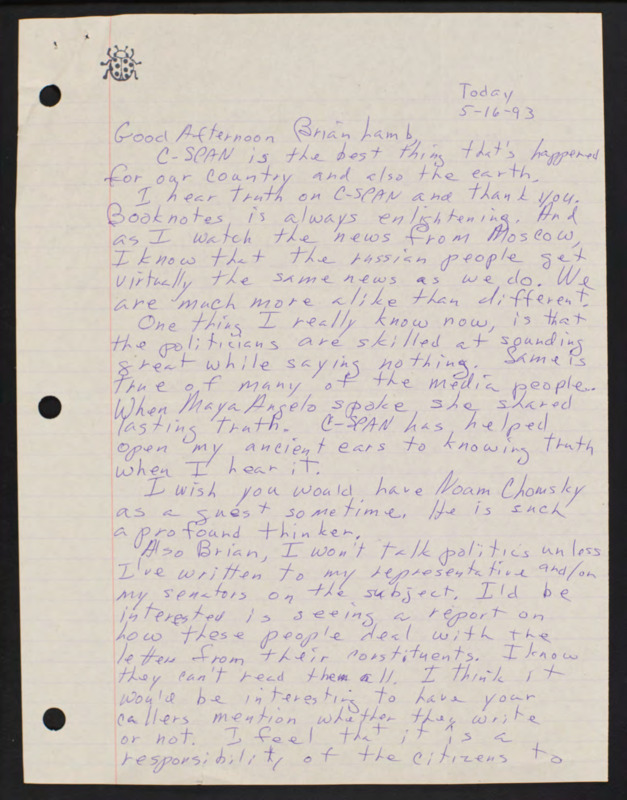 Today
5-16-93
Good Afternoon Brian Lamb,
C-SPAN is the best thing that's happened
for our country and also the earth.
I hear truth on C-SPAN and thank you.
Booknotes is always enlightening. And
as I watch the news from Moscow,
I know that the russian people get
virtually the same news as we do. We
are much more alike than different.
One thing I really know now, is that
the politicians are skilled at sounding
great while saying nothing. Same is
true of many of the media people.
When Maya Angelo spoke she shared
lasting truth. C-SPAN has helped
open my ancient ears to knowing truth
when I hear it.
I wish you would have Noam Chomsky
as a guest sometime. He is such
a profound thinker.
Also Brian, I won't talk politics unless
I've written to my representative and/or
my senators on the subject. I'd be
interested is seeing a report on
how these people deal with the
letters from their constituents. I know
they can't read them all. I think it
would be interesting to have your
callers mention whether they write
or not. I feel that it is a
responsibility of the citizens to